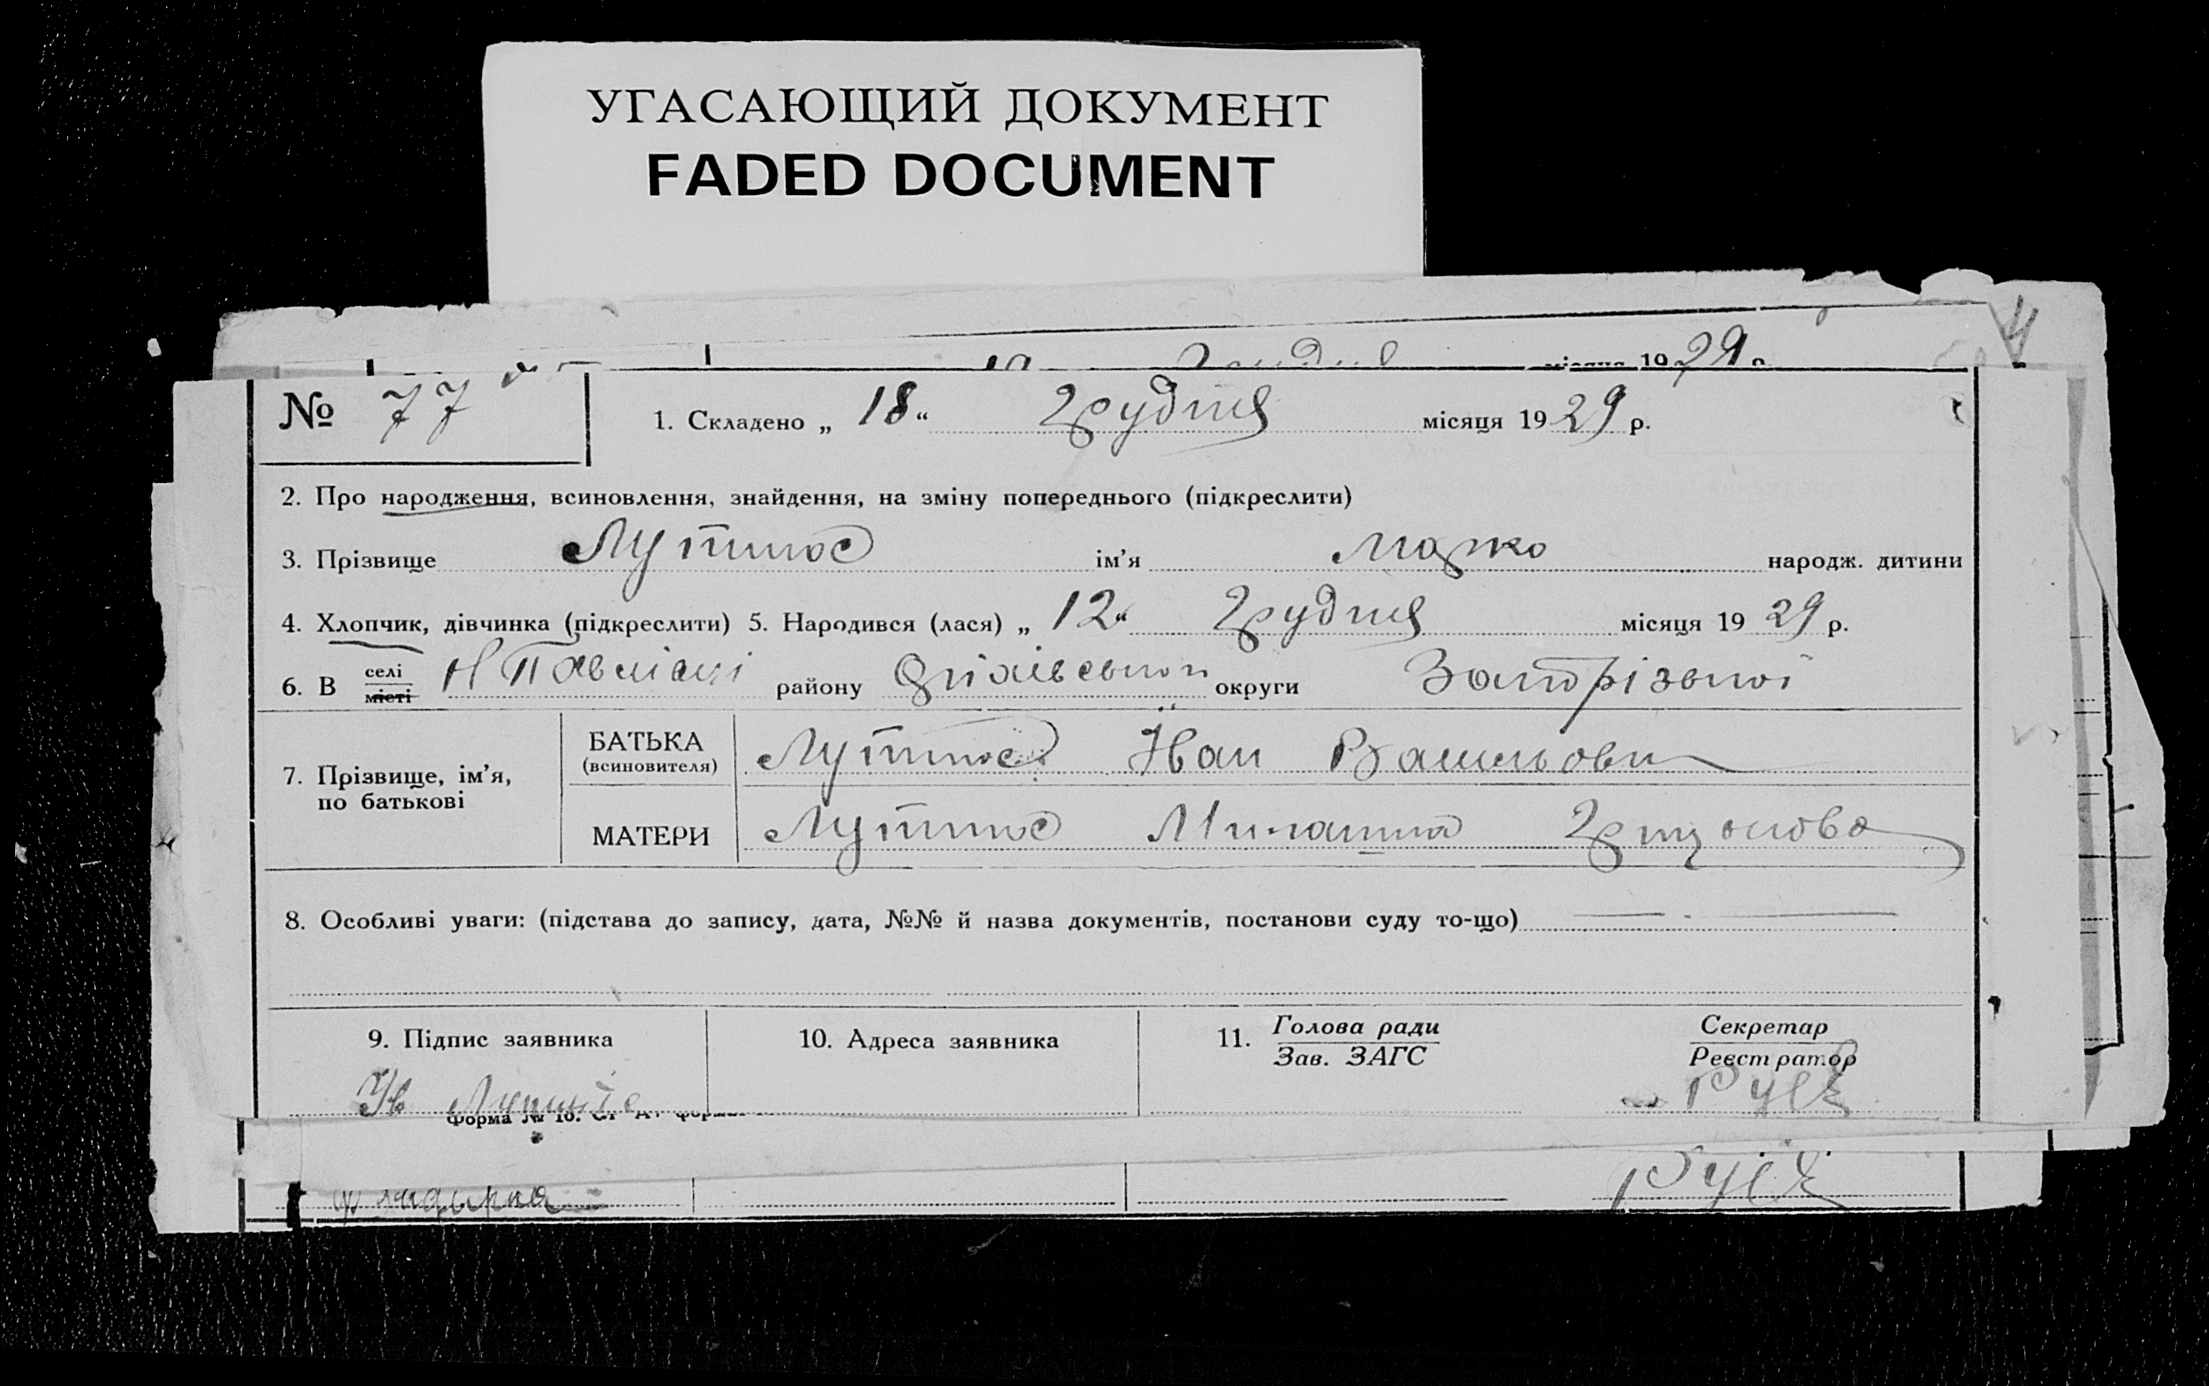 УГАСАЮЩИЙ ДОКУМЕНТ
FADED DOCUMENT
місяця 1929 р.
№ 77
1. Складено „ 18 “ Грудня місяця 1929 р.
2. Про народження, всиновлення, знайдення, на зміну попереднього (підкреслити)
3. Прізвище ім’я Марко народж. дитини
4. Хлопчик, дівчинка (підкреслити) 5. Народився (лася) „ 12 “ Грудня місяця 1929 р.
6. В селі місті Н Павлівці району округи Запорізької
7. Прізвище, ім’я, по батькові
БАТЬКА (всиновителя) Йван Васильович
МАТЕРИ
8. Особливі уваги: (підстава до запису, дата, №№ й назва документів, постанови суду то-що)
9. Підпис заявника
10. Адреса заявника
11. Голова ради
Зав. ЗАГС
Секретар
Реєстратор
Форма № 16.